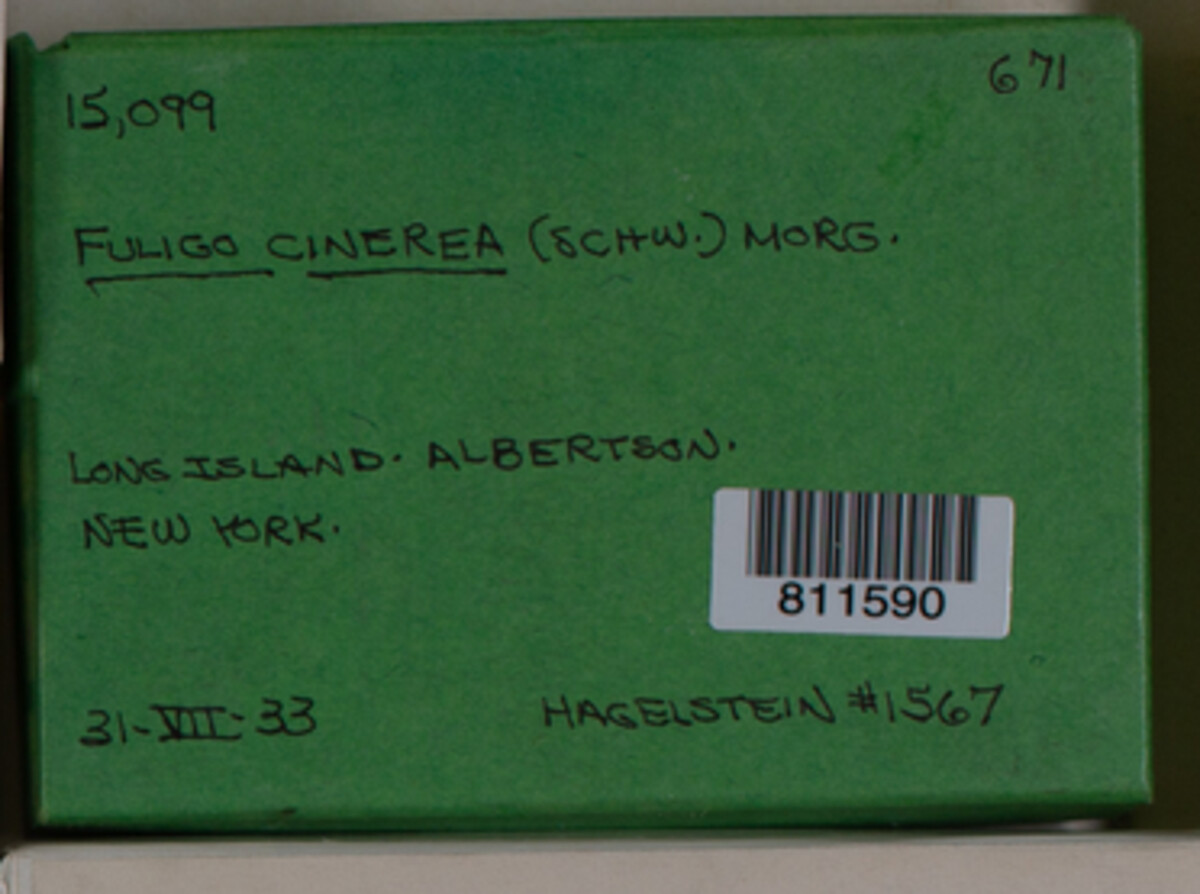 15,099
671
FULIGO CINEREA (SCHW.) MORG.
LONG ISLAND. ALBERTSON.
NEW YORK.
811590
31-VII-33
HAGELSTEIN #1567